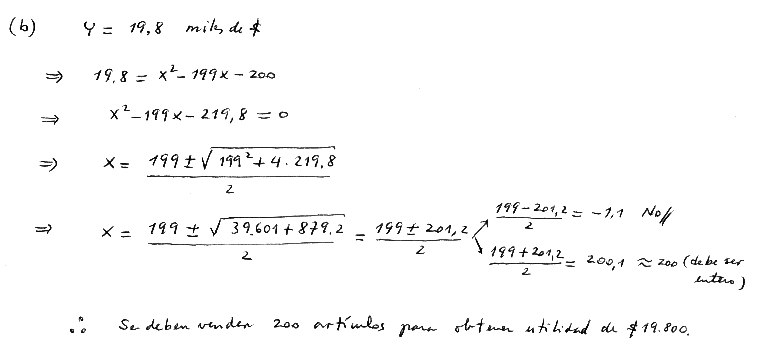 (b) Y = 19,8 miles de $
⇒ 19,8 = x² - 199x - 200
⇒ x² - 199x - 219,8 = 0
⇒ x = (199 ± √(199² + 4 · 219,8)) / 2
⇒ x = (199 ± √(39.601 + 879,2)) / 2 = (199 ± 201,2) / 2
(199 - 201,2) / 2 = -1,1 No//
(199 + 201,2) / 2 = 200,1 ≈ 200 (debe ser
entero)
∴ Se deben vender 200 artículos para obtener utilidad de $19.800.